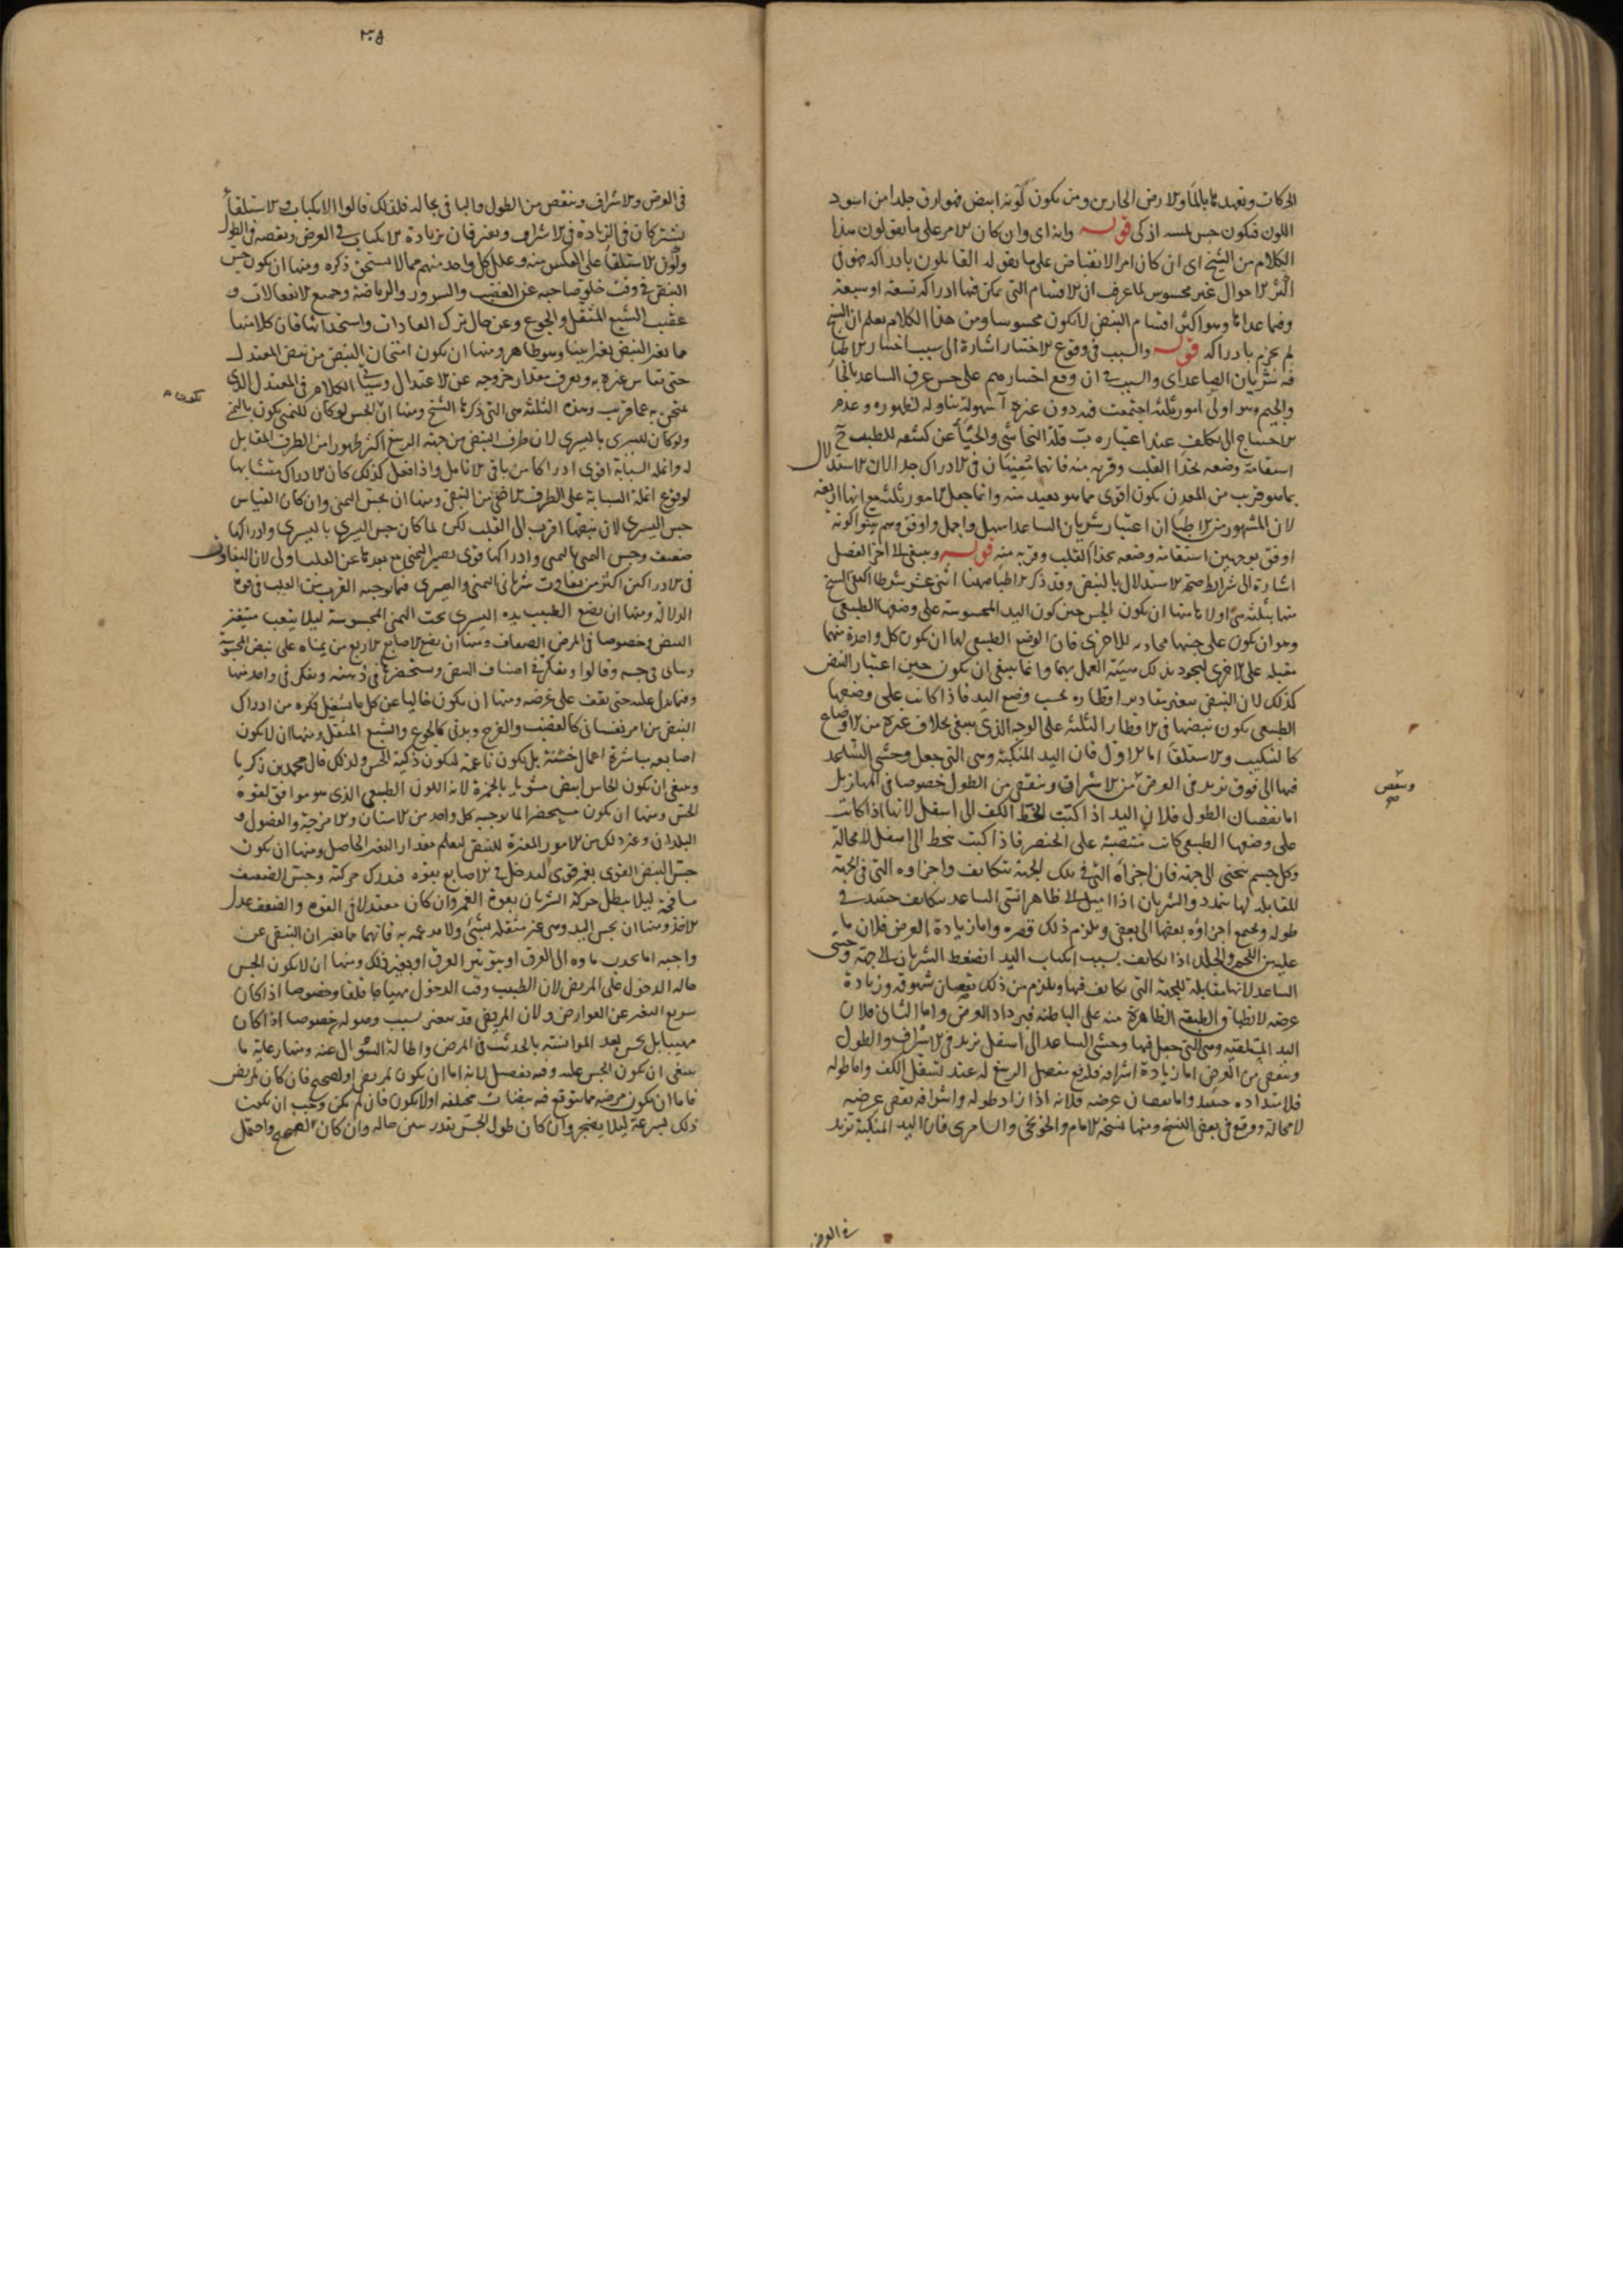 الحركات وتعهدها بالماء والادهن الحارين ومن يكون لونه ابيض فهو ارق جلدا من اسود
اللون فيكون حس لمسه اذكى قوله وانه اى وان كان الامر على ما يقولون هذا
الكلام من الشيخ اى ان كان امر الانقباض على ما يقوله القايلون بادراكه فهو فى
اكثر الاحوال غير محسوس لما عرف ان الاقسام التى يمكن فيها ادراكه تسعة او سبعة
وفيما عداها وهو اكثر اقسام النبض لا يكون محسوسا ومن هذا الكلام يعلم ان الشيخ
لم يجزم بادراكه قوله والسبب فى وقوع الاختيار اشارة الى سبب اختيار الاطباء
فيه شريان الساعد اى والسبب فى ان وقع اختيارهم على جس عرق الساعد
امور ثلثة اجتمعت فيه دون غيره آ سهولة تناوله لظهوره وعدم
الاحتياج الى تكلف عند اعتباره ب قلة التحاشى والحياء عن كشفه للطبيب ج
استقامة وضعه بحذاء القلب وقربه منه فانهما معينان فى الادراك جدا لان الاستدلال
بما هو قريب من المعدن يكون اقوى مما هو بعيد منه وانما جعل الامور ثلثة مع انها اربعة
لان المشهور من الاطباء ان اعتبار شريان الساعد اسهل واجمل واوفق وهم بينوا كونه
اوفق بوجهين استقامة وضعه بحذاء القلب وقربه منه قوله وينبغى الى اخر الفصل
اشارة الى شرايط صحة الاستدلال بالنبض وقد ذكر الاطباء ههنا اثنى عشر شرطا اكتفى الشيخ
منها بثلثة هى اولاها منها ان يكون الجس حين كون اليد المجسوسة على وضعها الطبيعى
وهو ان يكون على جنبها محاذيه للاخرى فان الوضع الطبيعى لها ان يكون كل واحدة منهما
مقبله على الاخرى ليجود بذلك هيئة العمل بهما وانما ينبغى ان يكون حين اعتبار النبض
كذلك لان النبض يتغير مقادير اقطاره بحسب وضع اليد فاذا كانت على وضعها
الطبيعى يكون نبضها فى الاقطار الثلثة على الوجه الذى ينبغى بخلاف غيره من الاوضاع
كالتنكيب والاستلقاء اما الاول فان اليد المتكبة وهى التى جعل وحشى الساعد
فيها الى فوق تزيد فى العرض من الاشراف وينقص من الطول خصوصا فى المهازيل
اما نقصان الطول فلان اليد اذا اكبت انحط الكف الى اسفل لانها اذا كانت
على وضعها الطبيعى كانت منتصبة على الخنصر فاذا اكبت تنحط الى اسفل لا محالة
وكل جسم ينحنى الى جهة فان اجزاءه التى فى تلك الجهة تتكاثف واجزاوه التى فى الجهة
المقابلة لها تتمدد والشريان اذا اميل الى ظاهر انسى الساعد يتكاثف حينئذ فى
طوله ويجتمع اجزاؤه بعضها الى بعض ويلزم ذلك قصره واما زيادة العرض فلان ما
عليه من اللحم والجلد اذا تكاثف بسبب انكباب اليد انضغط الشريان الى جهة وحشى
الساعد لانها مقابلة للجهة التى تكاثف فيها ويلزم من ذلك نقصان شهوقه وزيادة
عرضه لانطباق الطبقة الظاهرة منه على الباطنة فيزداد العرض واما الثانى فلان
اليد المستلقيه وهى التى جعل فيها وحشى الساعد الى اسفل تزيد فى الاشراف والطول
وينقص من العرض اما زيادة اشرافه فلرفع مفصل الرسغ له عند تسفل الكف واما طوله
فلامتداده حينئذ واما نقصان عرضه فلانه اذا زاد طوله واشرافه نقص عرضه
لا محالة ووقع فى بعض النسخ ومنها نسخة الامام والخونجى والسامرى فان اليد المتكبة تزيد
وينقص
صح
فى العرض
٣٠٥
فى العرض والاشراف وينقص من الطول والباقى بحاله فلذلك قالوا الانكباب والاستلقاء
يشتركان فى الزيادة فى الاشراف ويفترقان بزيادة الانكباب فى العرض ونقصه فى الطول
وكون الاستلقاء على العكس منه وعلل كل واحد منهم مما لا يستحق ذكره ومنها ان يكون جس
النبض فى وقت خلو صاحبه عن الغضب والسرور والرياضة وجميع الانفعالات و
عقيب الشبع المثقل والجوع وعن حال ترك العادات واستحداثها فان كلا منها
مما يغير النبض تغيرا بينا وهو ظاهر ومنها ان يكون امتحان النبض من نبض المعتدل
حتى يقاس غيره به ويعرف مقدار خروجه عن الاعتدال وسياتى الكلام فى المعتدل الذى
يمتحن به عما قريب وهذه الثلثة هى التى ذكرها الشيخ ومنها ان الجس لو كان لليمنى يكون باليمنى
ولو كان لليسرى باليسرى لان طرف النبض من جهة الرسغ اكثر ظهورا من الطرف المقابل
له وانملة السبابة اقوى ادراكا من باقى الانامل واذا فعل كذلك كان الادراك متشابها
لوقوع انملة السبابة على الطرف الاخفى من النبض ومنها ان يجس اليمنى وان كان القياس
جس اليسرى لان نبضها اقرب الى القلب لكن لما كان جس اليسرى باليسرى وادراكها
ضعيف وجس اليمنى باليمنى وادراكها قوى يصير اليمنى مع بعدها عن القلب اولى لان التفاوت
فى الادراكين اكثر من تفاوت شريانى اليمنى واليسرى فيما يوجبه القرب من القلب فى قوة
الدلالة ومنها ان يضع الطبيب يده اليسرى تحت اليمنى المجسوسة ليلا يتعب فيتغير
النبض وخصوصا فى المرضى الضعاف ومنها ان يضع الاصابع الاربع من يمناه على نبض المجسوسة
ويتانى فى جسه وقالوا ويتفكر فى اصناف النبض ويستحضرها فى ذهنه ويفكر فى واحد منها
وفيما يدل عليه حتى يقف على غرضه ومنها ان يكون خاليا عن كل ما يشغل فكره من ادراك
النبض من امر نفسانى كالغضب والفرح وبدنى كالجوع والشبع المثقل ومنها ان لا يكون
اصابعه مباشرة اعمال خشنة بل يكون ناعمة لتكون ذكية الحس ولذلك قال محمد بن زكريا
وينبغى ان يكون الجاس ابيض مشوبا بالحمرة لانه اللون الطبيعى الذى هو موافق لقوة
الحس ومنها ان يكون مستحضرا لما يوجبه كل واحد من الاسنان والامزجة والفصول و
البلدان وغير ذلك من الامور المغيرة للنبض ليعلم مقدار التغير الحاصل ومنها ان يكون
جس النبض القوى بغمز قوى ليدخل فى الاصابع بقوة فيدرك حركته وجس الضعيف
ليلا يبطل حركة الشريان بقوة الغمز وان كان معتدلا فى القوة والضعف عدل
الاخذ ومنها ان يجس اليد وهى غير مثقلة بشئ ولا مدعمة به فانهما مما يغير ان النبض عن
واجبه اما بجذب مادة الى العرق او بتوتير العرق او بغير ذلك ومنها ان لا يكون الجس
حالة الدخول على المريض لان الطبيب وقت الدخول خصوصا اذا كان
سريع التغير عن العوارض ولان المريض قد يتغير بسبب وصوله خصوصا اذا كان
مهيبا بل يجس بعد الموانسة بالحديث فى المرض واطالة السؤال عنه ومنها رعاية ما
ينبغى ان يكون الجس عليه وفيه تفصيل لانه اما ان يكون لمريض او لصحيح فان كان لمريض
فاما ان يكون مرضه مما يتوقع فيه نبضات مختلفة او لا يكون فان لم يكن وجب ان يكون
ذلك بسرعة ليلا يضجر وان كان طول الجس بقدر سنن حاله وان كان الصحيح واحتمل